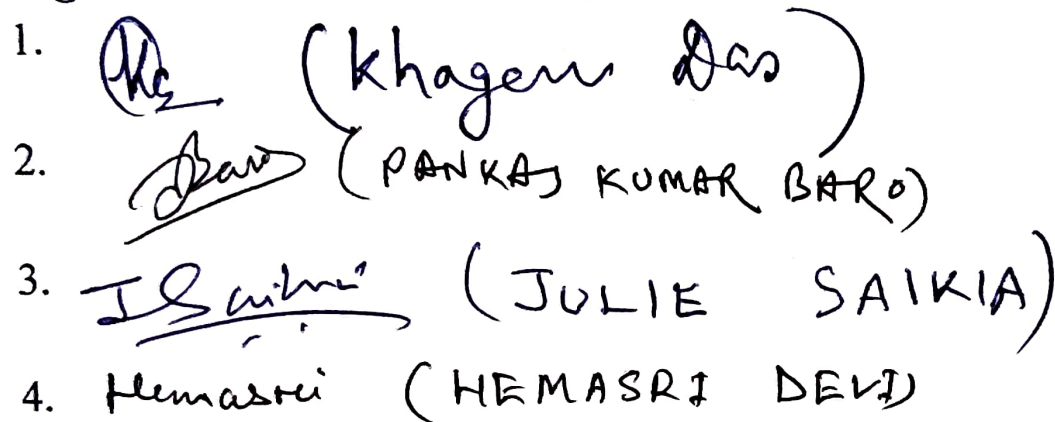 1. (Khagen Das)
2. Baro (PANKAJ KUMAR BARO)
3. J Saikia (JULIE SAIKIA)
4. Hemasri (HEMASRI DEVI)